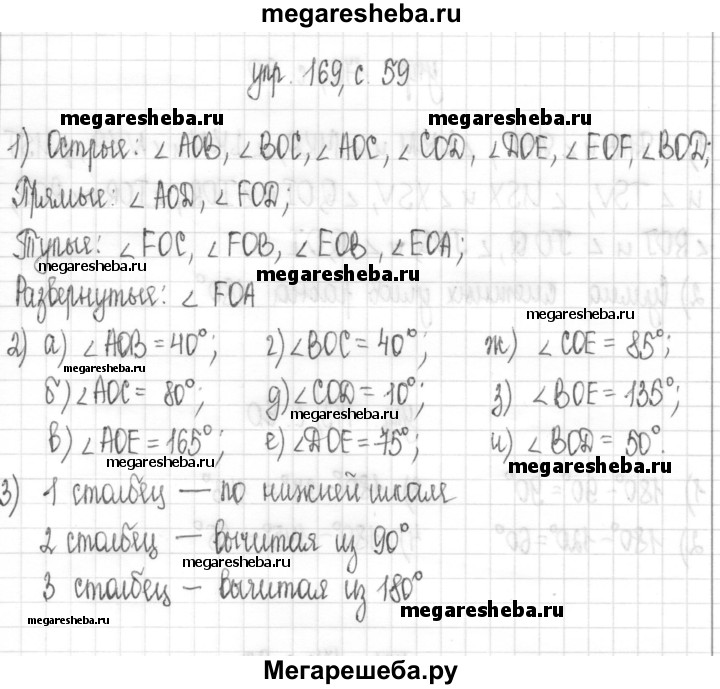 megaresheba.ru
упр. 169, с. 59
megaresheba.ru megaresheba.ru
1) Острые: ∠AOB, ∠BOC, ∠AOC, ∠COD, ∠DOE, ∠EOF, ∠BOD;
Прямые: ∠AOD, ∠FOD;
Тупые: ∠FOC, ∠FOB, ∠EOB, ∠EOA;
megaresheba.ru megaresheba.ru
Развернутые: ∠FOA
megaresheba.ru
2) а) ∠AOB = 40°; г) ∠BOC = 40°; ж) ∠COE = 85°;
megaresheba.ru
б) ∠AOC = 80°; д) ∠COD = 10°; з) ∠BOE = 135°;
megaresheba.ru
в) ∠AOE = 165°; е) ∠DOE = 75°; и) ∠BOD = 50°.
megaresheba.ru megaresheba.ru
3) 1 столбец — по нижней шкале
2 столбец — вычитая из 90°
megaresheba.ru
3 столбец — вычитая из 180°
megaresheba.ru megaresheba.ru
Мегарешеба.ру